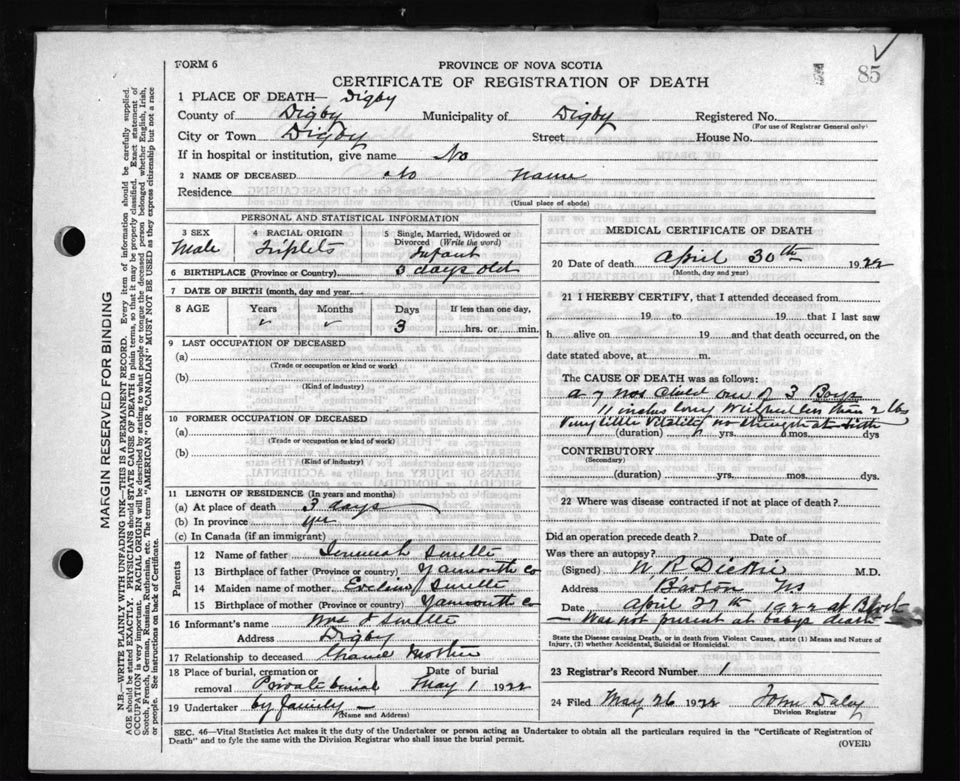 FORM 6
85
PROVINCE OF NOVA SCOTIA
CERTIFICATE OF REGISTRATION OF DEATH
1 PLACE OF DEATH— Digby
County of Digby Municipality of Digby Registered No.
(For use of Registrar General only)
City or Town Digby Street House No.
If in hospital or institution, give name No
2 NAME OF DECEASED no name
Residence
(Usual place of abode)
PERSONAL AND STATISTICAL INFORMATION
3 SEX
Male
4 RACIAL ORIGIN
Triplets
5 Single, Married, Widowed or Divorced (Write the word)
Infant
6 BIRTHPLACE (Province or Country) 3 days old
7 DATE OF BIRTH (month, day and year)
8 AGE Years Months Days If less than one day,
3 hrs. or min.
9 LAST OCCUPATION OF DECEASED
(a)
(Trade or occupation or kind or work)
(b)
(Kind of industry)
10 FORMER OCCUPATION OF DECEASED
(a)
(Trade or occupation or kind of work)
(b)
(Kind of industry)
11 LENGTH OF RESIDENCE (In years and months)
(a) At place of death 3 days
(b) In province
(c) In Canada (if an immigrant)
Parents
12 Name of father Jeremiah
13 Birthplace of father (Province or country) Yarmouth Co
14 Maiden name of mother
15 Birthplace of mother (Province or country) Yarmouth Co
16 Informant's name Mrs J
Address Digby
17 Relationship to deceased Mother
18 Place of burial, cremation or removal Private burial Date of burial May 1 1922
19 Undertaker by family —
(Name and Address)
MEDICAL CERTIFICATE OF DEATH
20 Date of death April 30th 1922
(Month, day and year)
21 I HEREBY CERTIFY, that I attended deceased from
19 to 19 that I last saw
h alive on 19 and that death occurred, on the
date stated above, at m.
The CAUSE OF DEATH was as follows:
a 7 mos child one of 3 Boys
11 inches long weighed less than 2 lbs
Very little Vitality no strength at birth
(duration) yrs. mos. dys
CONTRIBUTORY
(Secondary)
(duration) yrs. mos. dys.
22 Where was disease contracted if not at place of death?
Did an operation precede death? Date of
Was there an autopsy?
(Signed) W R Dickie M.D.
Address Barton NS
Date April 27th 1922 at Birth
— Was not present at babys death —
State the Disease causing Death, or in death from Violent Causes, state (1) Means and Nature of
Injury, (2) whether Accidental, Suicidal or Homicidal.
23 Registrar's Record Number 1
24 Filed May 26 1922 John Daley
Division Registrar
SEC. 46—Vital Statistics Act makes it the duty of the Undertaker or person acting as Undertaker to obtain all the particulars required in the "Certificate of Registration of
Death" and to fyle the same with the Division Registrar who shall issue the burial permit.
(OVER)
MARGIN RESERVED FOR BINDING
N.B.—WRITE PLAINLY WITH UNFADING INK—THIS IS A PERMANENT RECORD. Every item of information should be carefully supplied.
AGE should be stated EXACTLY. PHYSICIANS should STATE CAUSE OF DEATH in plain terms, so that it may be properly classified. Exact statement of
OCCUPATION is very important. RACIAL ORIGIN will be described by stating to what people or tongue the deceased person belonged whether English, Irish,
Scotch, French, German, Russian, Ruthenian, etc. The terms "AMERICAN" OR "CANADIAN" MUST NOT BE USED as they express citizenship but not a race
or people. See instructions on back of Certificate.